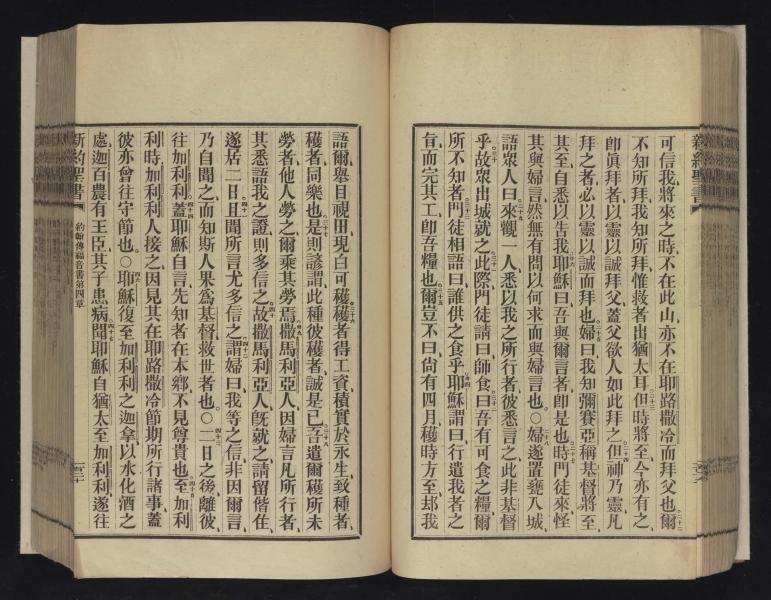 可信我將來之時不在此山亦不在耶路撒冷而拜父也爾
不知所拜我知所拜惟救者出猶太耳但時將至今亦有之
卽眞拜者以靈以誠拜父蓋父欲人如此拜之但神乃靈凡
拜之者必以靈以誠而拜也婦曰我知彌賽亞稱基督將至
其至自悉以告我耶穌曰吾與爾言者卽是也時門徒來怪
其與婦言然無有問以何求而與婦言也○婦遂置甕入城
語眾人曰來觀一人悉以我之所行者彼悉言之此非基督
乎故眾出城就之此際門徒請曰師食曰吾有可食之糧爾
所不知者門徒相語曰誰供之食乎耶穌謂曰行遣我者之
旨而完其工卽吾糧也爾豈不曰尙有四月穫時方至郄我
語爾舉目視田現白可穫穫者得工資積實於永生致種者
穫者同樂也是則諺謂此種彼穫者誠是已吾遣爾穫所未
勞者他人勞之爾乘其勞焉撒馬利亞人因婦言凡所行者
其悉語我之證則多信之故撒馬利亞人旣就之請留偕住
遂居二日且聞所言尤多信之謂婦曰我等之信非因爾言
乃自聞之而知斯人果爲基督救世者也○二日之後離彼
往加利利蓋耶穌自言先知者在本鄉不見尊貴也至加利
利時加利利人接之因見其在耶路撒冷節期所行諸事蓋
彼亦曾往守節也○耶穌復至加利利之迦拿以水化酒之
處迦百農有王臣其子患病聞耶穌自猶太至加利利遂往
新約聖書
約翰傳福音書第四章